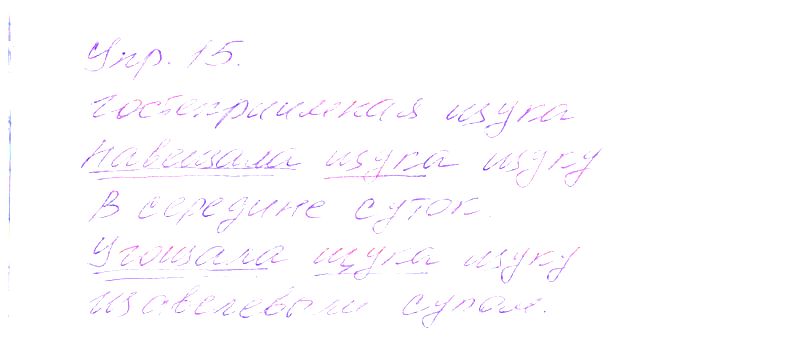 Упр. 15.
Гостеприимная щука
Навещала щука щуку
В середине суток.
Угощала щука щуку
Щавелевым супом.